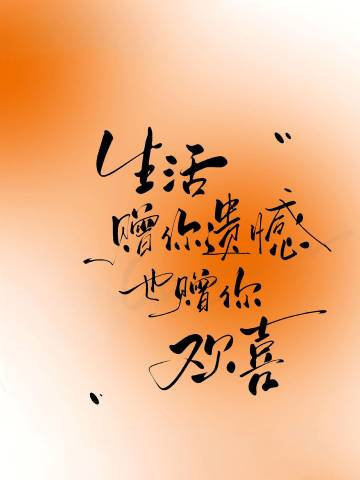 生活〃
赠你遗憾
也赠你
欢喜
〃